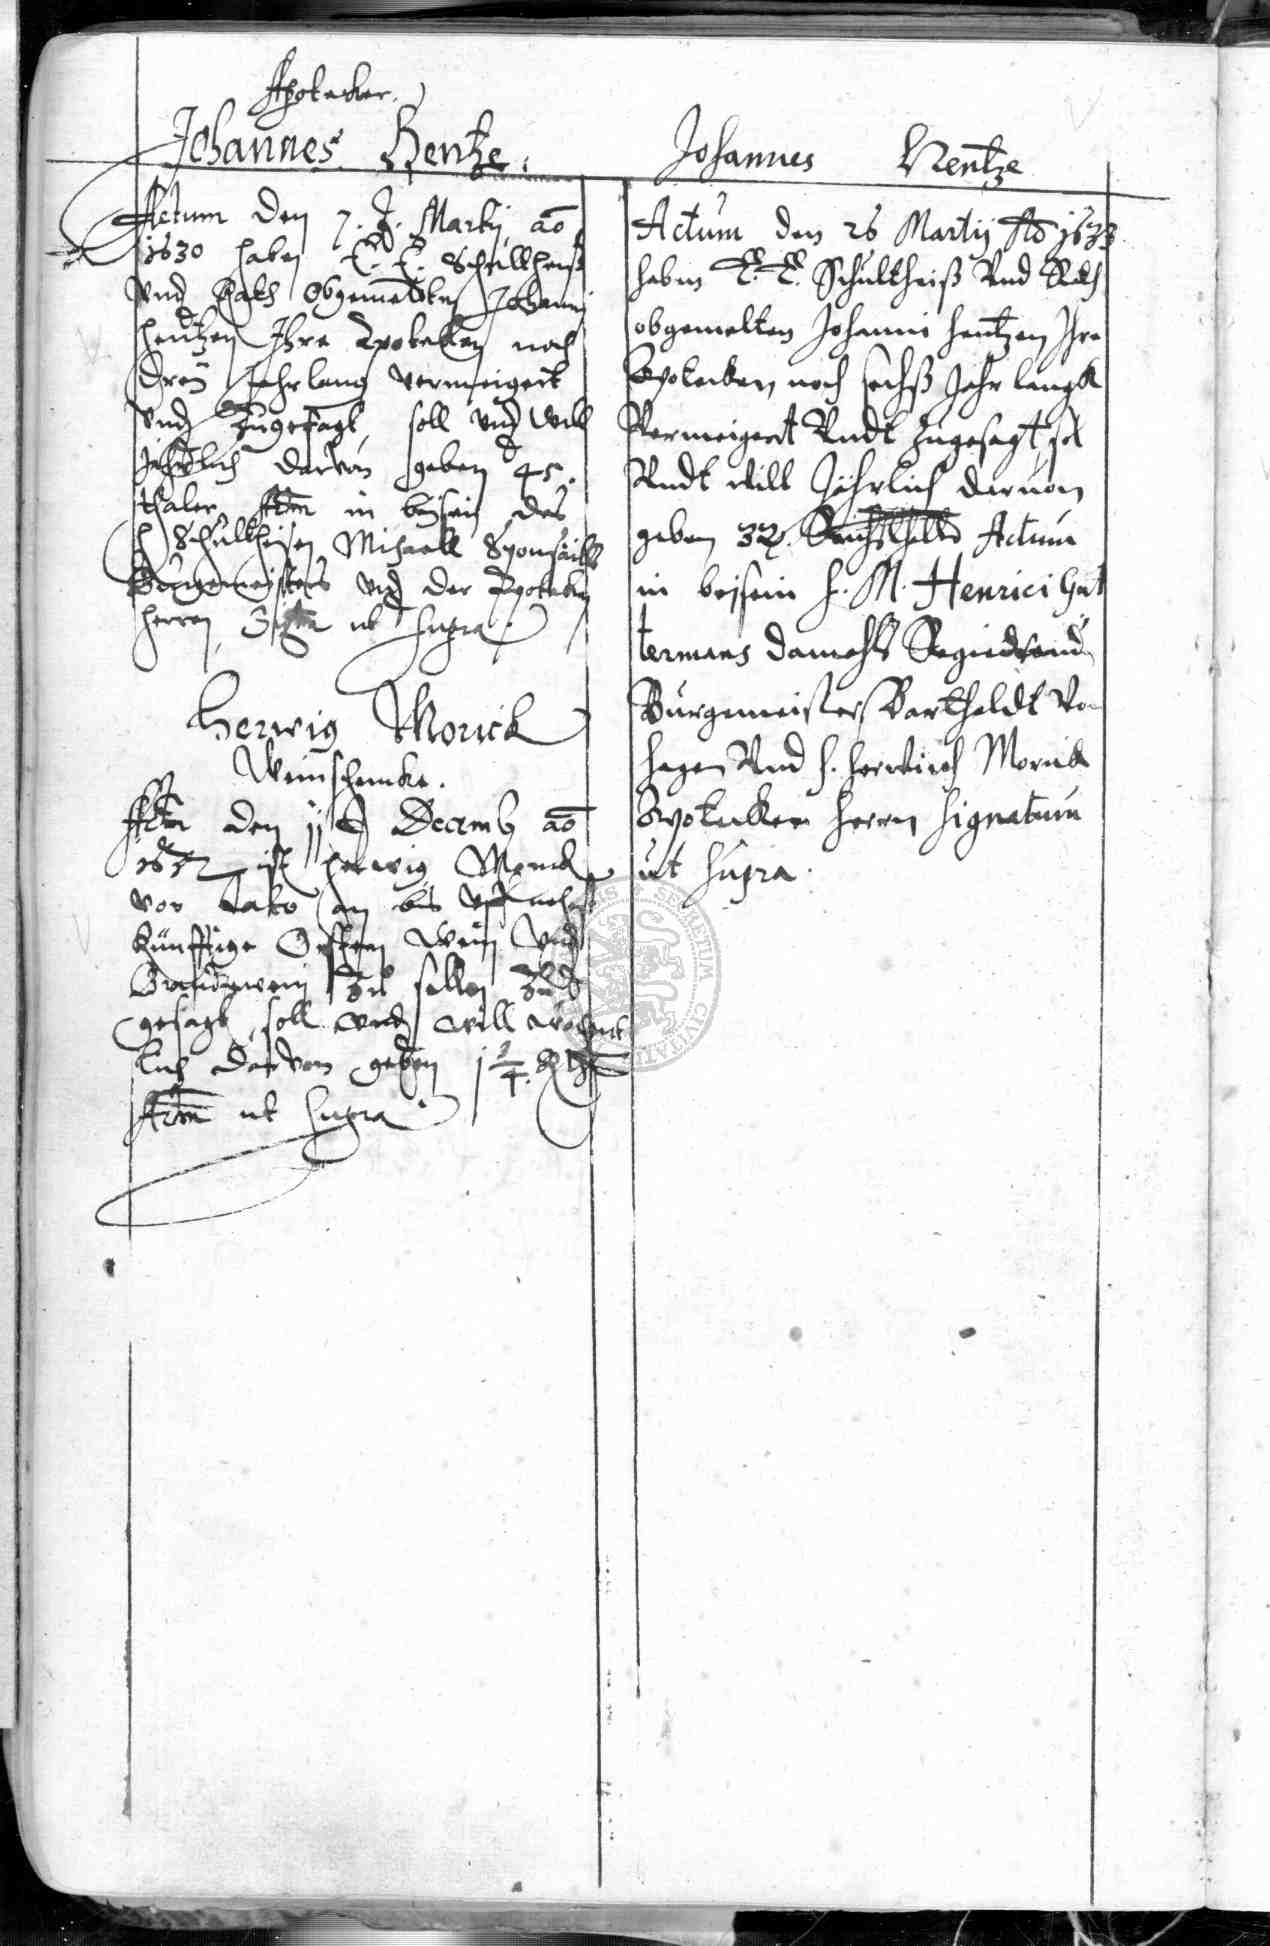 Apotecker.
Johannes Hentze.
Actum den 7. Martij ao
1630 haben E. E. Schulltheiß
Vnd Rath Obgemelten Johanni
hentzen Ihre Apotecken noch
Dreÿ Jahrlang vermeigert
Vnd Zugesagt, soll Vnd will
Jährlich darvon geben 45.
thaler, Actm in beÿsein des
H Schultheisen Michaell
Bürgemeisters Vnd der Apotecken
herren, Sigtm ut supra.
Herwig Morick
Weinschencke.
Actm den 11 Decemb ao
1632 ist herwig Morick
vor dato an bis vff nehst
Künfftige Ostern Wein Vnd
Brandtwein Zu sellen Zu
gesagt, soll Vnd will wochent
lich darvon geben 1 1/4 Rthlr
Actm ut supra.
Johannes Hentze
Actum den 26 Martij Ao 1633
haben E. E. Schultheiß Vnd Rath
obgemelten Johanni hentzen Ihre
Apotecken, noch sechß Jahr langk
Vermeigert Vndt Zugesagt, sol
Vndt will Jährlich daruon
geben 32. Reichsthaler Actum
in beisein H. M. Henrici Gut
termans damahls Regierend
Burgemeisters Bartholdt Vo
hagen Vnd H. herwich Morick
Apotecken herrn signatum
ut supra.